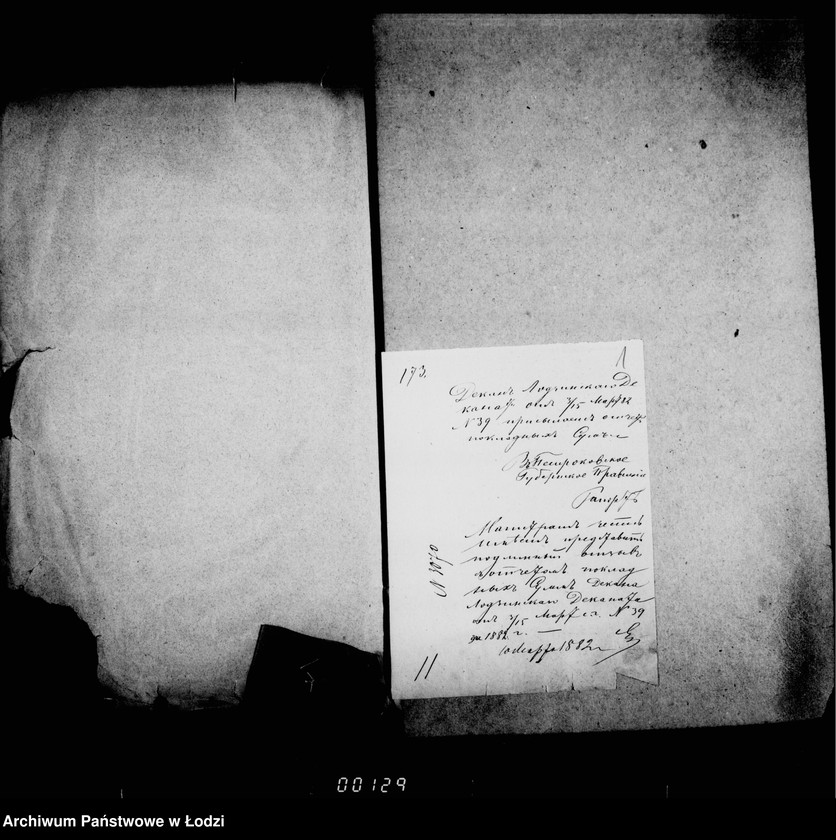 173.
1
Деканъ Лодзинскаго Де
каната отъ 3/15 Марта 82
N 39 присылаетъ отчетъ
покладныхъ Суммъ
Въ Петроковское
Губернское Правленіе
Рапортъ
Магистратъ честь
имѣетъ представить
подлинный отзывъ
отчетомъ поклад
ныхъ Суммъ Декана
Лодзинскаго Деканата
отъ 3/15 Марта с.г. N 39
за 1882 г.
Марта 1882 г.
N 3070
11
00129
Archiwum Państwowe w Łodzi